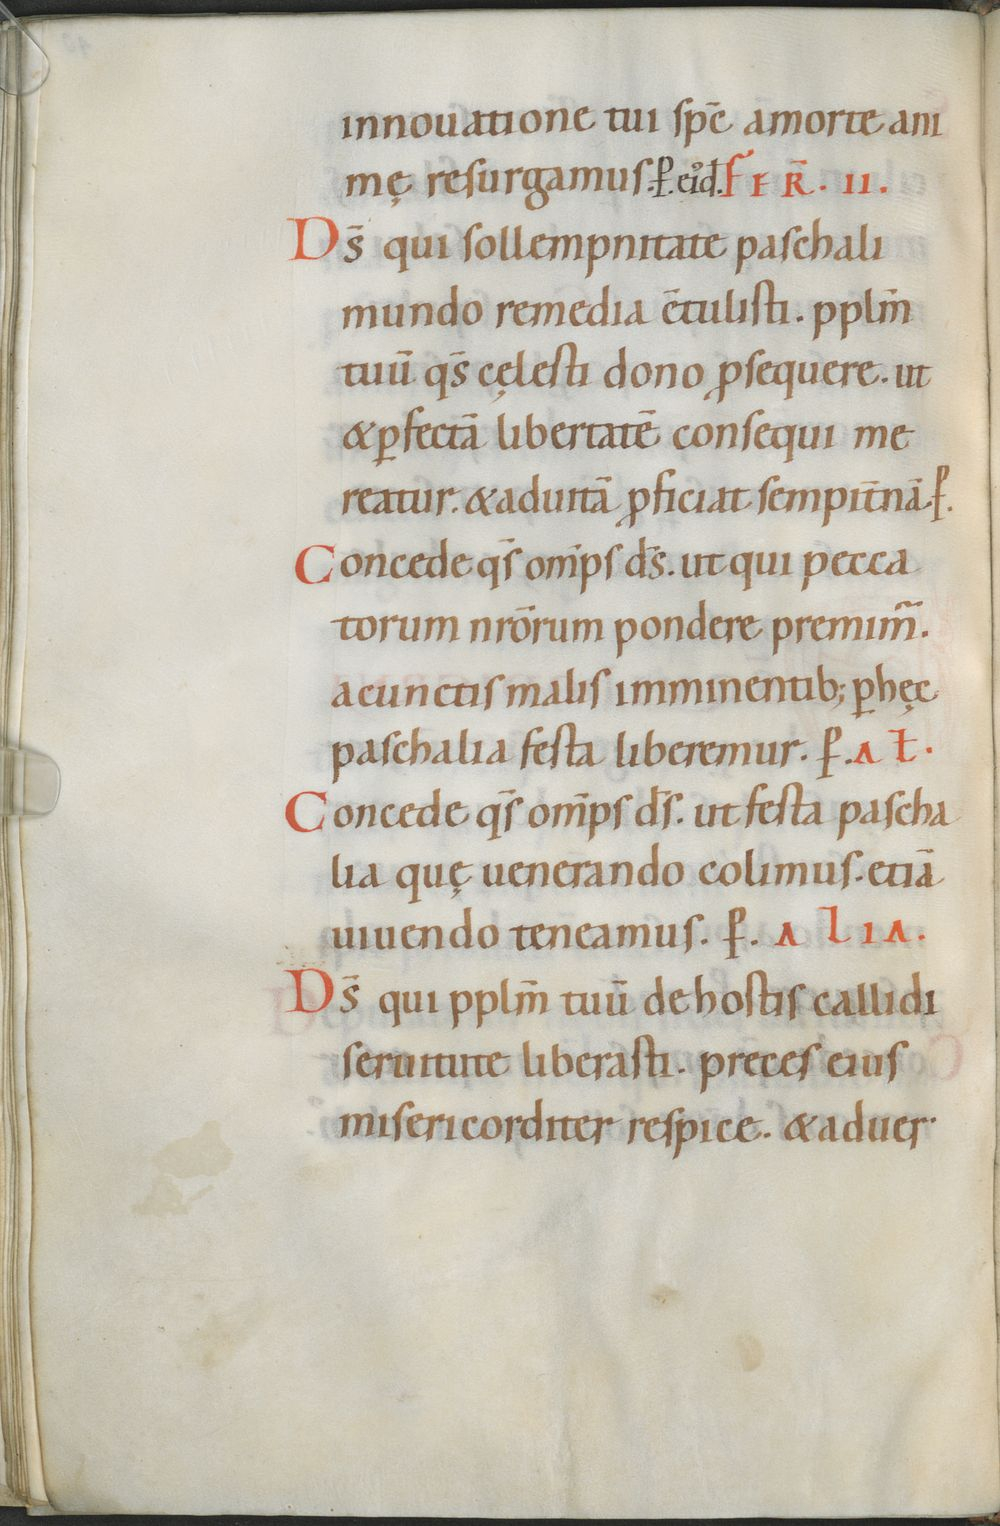 innouatione tui sp̄c amorte ani
mę resurgamus. ꝑ. eiꝰd. FER̄. II.
Ds̄ qui sollempnitate paschali
mundo remedia c̄tulisti. pplm̄
tuū qs̄ cęlesti dono ꝓsequere. ut
&ꝑfectā libertatē consequi me
reatur. &aduitā ꝓficiat sempit̄nā. ꝑ.
Concede qs̄ om̄ps ds̄. ut qui pecca
torum nr̄orum pondere premim̄.
acunctis malis imminentib; ꝑhęc
paschalia festa liberemur. ꝑ. AŁ.
Concede qs̄ om̄ps ds̄. ut festa pascha
lia quę uenerando colimus. etiā
uiuendo teneamus. ꝑ. ALIA.
Ds̄ qui pplm̄ tuū dehostis callidi
seruitute liberasti. preces eius
misericorditer respice. &aduer